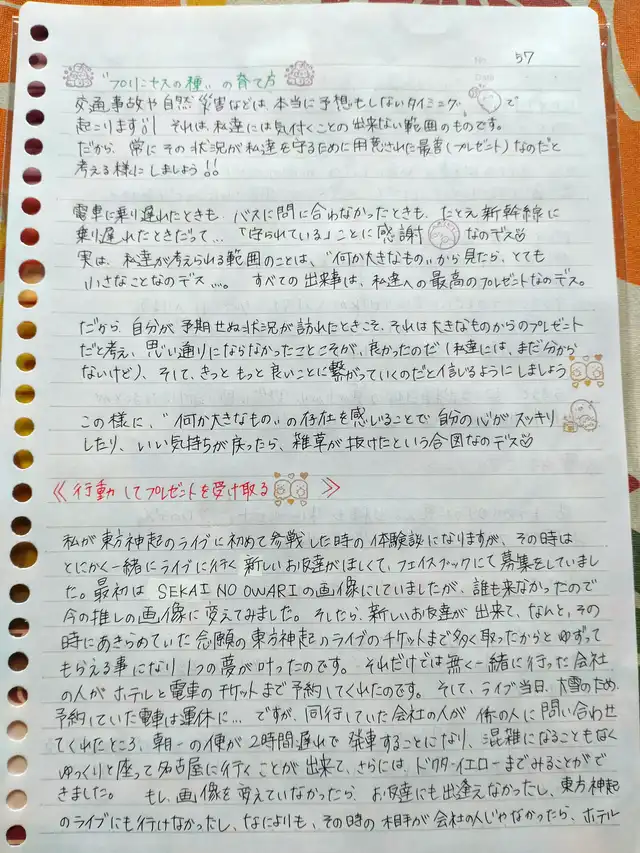 57
"プリンセスの種"の育て方
交通事故や自然災害などは、本当に予想もしないタイミングで
起こります!! それは、私達には気付くことの出来ない範囲のものです。
だから、常にその状況が私達を守るために用意された最善(プレゼント)なのだと
考える様にしましょう!!
電車に乗り遅れたときも、バスに間に合わなかったときも、たとえ新幹線に
乗り遅れたときだって…「守られている」ことに感謝なのデス♡
実は、私達が考えられる範囲のことは、"何か大きなもの"から見たら、とても
小さなことなのデス…。 すべての出来事は、私達への最高のプレゼントなのデス。
だから、自分が予期せぬ状況が訪れたときこそ、それは大きなものからのプレゼント
だと考え、思い通りにならなかったことこそが、良かったのだ(私達には、まだ分から
ないけど)、そして、きっともっと良いことに繋がっていくのだと信じるようにしましょう
この様に、"何か大きなもの"の存在を感じることで自分の心がスッキリ
したり、いい気持ちが戻ったら、雑草が抜けたという合図なのデス♡
《行動してプレゼントを受け取る》
私が東方神起のライブに初めて参戦した時の体験談になりますが、その時は
とにかく一緒にライブに行く新しいお友達がほしくて、フェイスブックにて募集をしていまし
た。最初は SEKAI NO OWARIの画像にしていましたが、誰も来なかったので
今の推しの画像に変えてみました。そしたら、新しいお友達が出来て、なんと、その
時にあきらめていた念願の東方神起のライブのチケットまで多く取ったからとゆずって
もらえる事になり、1つの夢が叶ったのです。それだけでは無く一緒に行った会社
の人がホテルと電車のチケットまで予約してくれたのです。そして、ライブ当日、大雪のため、
予約していた電車は運休に… ですが、同行していた会社の人が係の人に問い合わせ
てくれたところ、朝一の便が2時間遅れで発車することになり、混雑になることもなく
ゆっくりと座って名古屋に行くことが出来て、さらには、ドクターイエローまでみることがで
きました。 もし、画像を変えていなかったら、お友達にも出逢えなかったし、東方神起
のライブにも行けなかったし、なによりも、その時の相手が会社の人じゃなかったら、ホテル